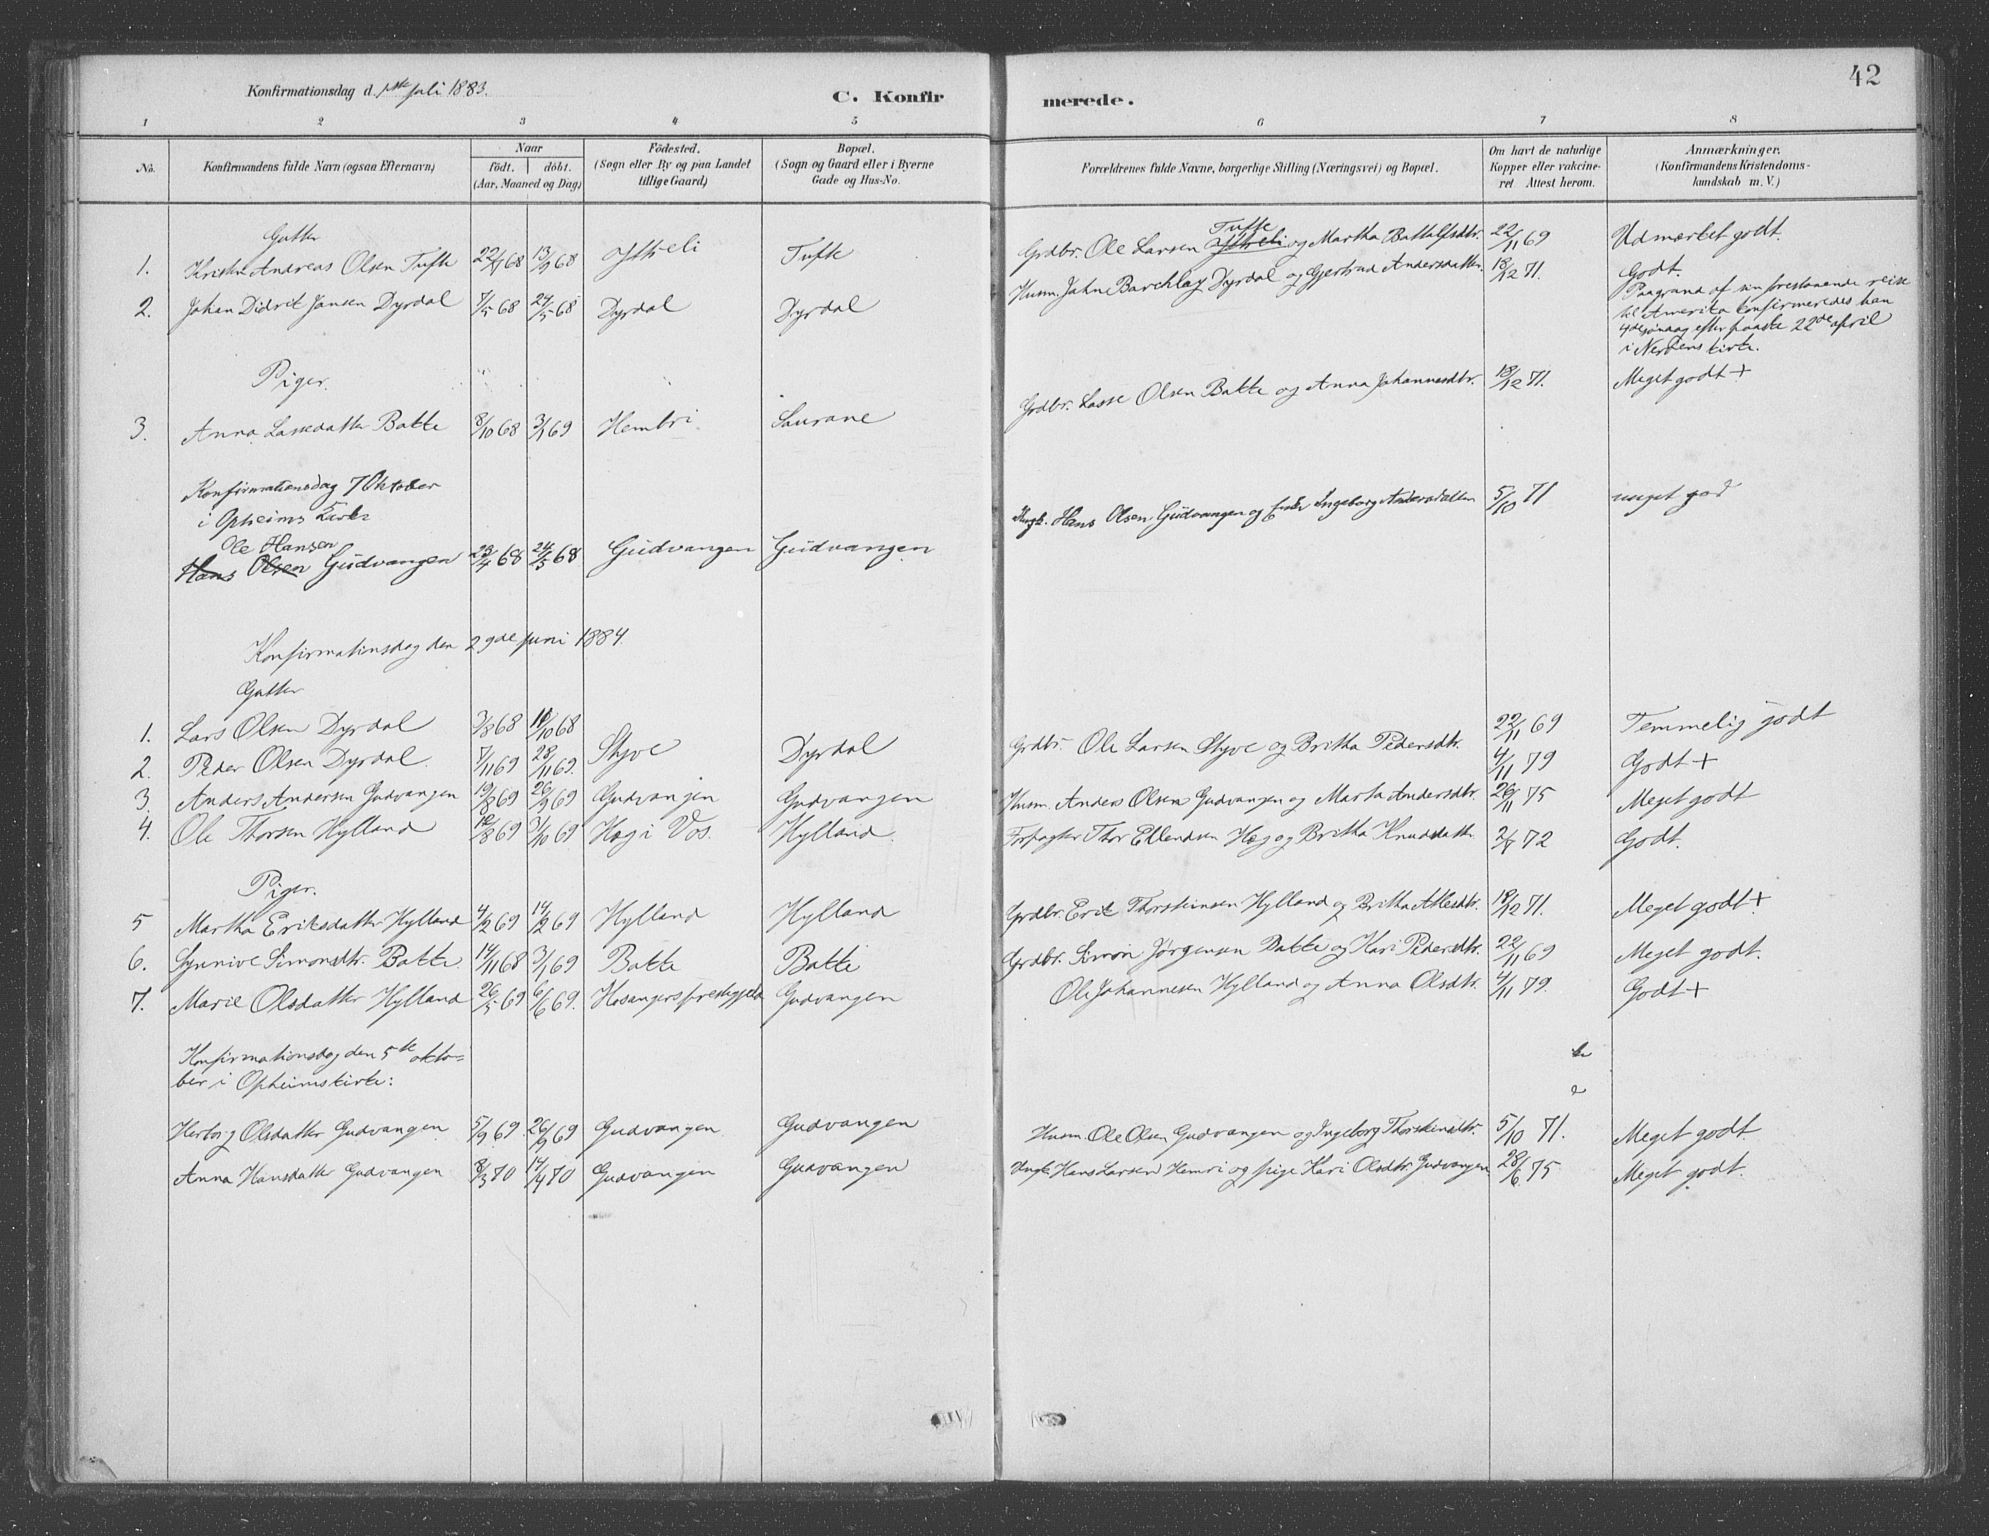 42
Konfirmationsdag d. 1ste juli 1883.
C. Konfir merede.
1 2 3 4 5 6 7 8
No. Konfirmandens fulde Navn (ogsaa Efternavn) Naar födt. döbt. (Aar, Maaned og Dag) Födested. (Sogn eller By og paa Landet tillige Gaard) Bopæl. (Sogn og Gaard eller i Byerne Gade og Hus-No. Forældrenes fulde Navne, borgerlige Stilling (Næringsvei) og Bopæl. Om havt de naturlige Kopper eller vakcineret Attest herom. Anmærkninger. (Konfirmandens Kristendomskundskab m. V.)
Gutter
1. Andreas Olsen Tufte 13/9 68 Ytreli Tufte Grdbr. Ole Larsen Ytreli Tufte og Martha Battolfsdtr. 22/11 69 Udmærket godt.
2. Johan Didrik Jansen Dyrdal 7/5 68 24/5 68 Dyrdal Dyrdal Husm. Barchlay Dyrdal og Gjertrud Andersdatter. 18/12 71. Godt.
Paagrund af sin forestaaende reise
til Amerika konfirmeredes han
4de søndag efter paaske 22de april
i kirke.
Piger.
3. Anna Lassedatter Bakke 8/10 68 3/1 69 Hembri Saurane Grdbr. Lasse Olsen Bakke og Anna Johannesdtr. 18/12 71. Meget godt +
Konfirmationsdag 7 Oktober
i Opheims Kirke
Ole Hansen
Hans Olsen Gudvangen 23/4 68 24/5 68 Gudvangen Gudvangen Hans Olsen Gudvangen og Ingeborg Andersdatter 5/10 71 meget god
Konfirmationsdag den 29de juni 1884
Gutter
1. Lars Olsen Dyrdal 3/8 68 11/10 68 22/11 69 Temmelig godt
2. Peder Olsen Dyrdal. 7/11 69 28/11 69. Styve Dyrdal Grdbr. Ole Larsen Styve og Britha Pedersdtr. 4/11 79 Godt +
3. Anders Andersen Gudvangen 19/8 69 26/9 69 Gudvangen Gudvangen Husm. Anders Olsen Gudvangen og Marta Andersdtr. 26/11 75 Meget godt
4. Ole Thorsen Hylland 12/8 69 3/10 69 Hæg i Vos. Hylland. Forpagter Thor Ellendsen Hæg og Britha Knudsdatter 72 Godt.
Piger.
5 Martha Eriksdatter Hylland 4/2 69 14/2 69 Hylland Hylland Grdbr. Erik Thorsteinsen Hylland og Britha Atlesdtr. 18/12 71. Meget godt +
6. Synnive Simonsdtr. Bakke. 14/11 68 3/1 69 Bakke Bakke Grdbr. Simon Jørgensen Bakke og Kari Pedersdtr. 22/11 69 Meget godt.
7. Marie Olsdatter Hylland 26/5 69 6/6 69. Hosangers prestegjeld Gudvangen Ole Johannesen Hylland og Anna Olsdtr. 4/11 79. Godt +
Konfirmationsdag den 5te okto-
ber i Opheimskirke:
Herborg Olsdatter Gudvangen 5/9 69. 26/9 69 Gudvangen Gudvangen Husm. Ole Olsen Gudvangen og Ingeborg Thorsteinsdtr. 5/10 71. Meget godt.
Anna Hansdatter Gudvangen 8/3 70 14/4 70 Gudvangen Gudvangen Ungk. Hans Larsen Hemri og pige Kari Olsdtr. Gudvangen 28/6 75 Meget godt.